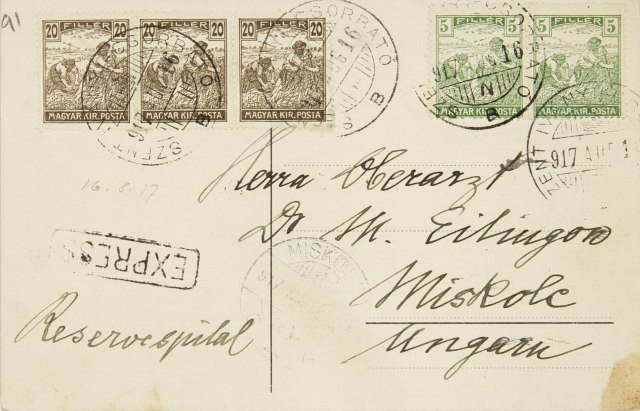 91
20 FILLÉR 20
MAGYAR KIR. POSTA
20 FILLÉR 20
MAGYAR KIR. POSTA
20 FILLÉR 20
MAGYAR KIR. POSTA
5 FILLÉR 5
MAGYAR KIR. POSTA
5 FILLÉR 5
MAGYAR KIR. POSTA
CSORBATÓ
917
16
B
16.8.17
Herrn Oberarzt
Dr. M. Eitingon
Miskolc
Ungarn
EXPRESS
MISKO
Reservespital